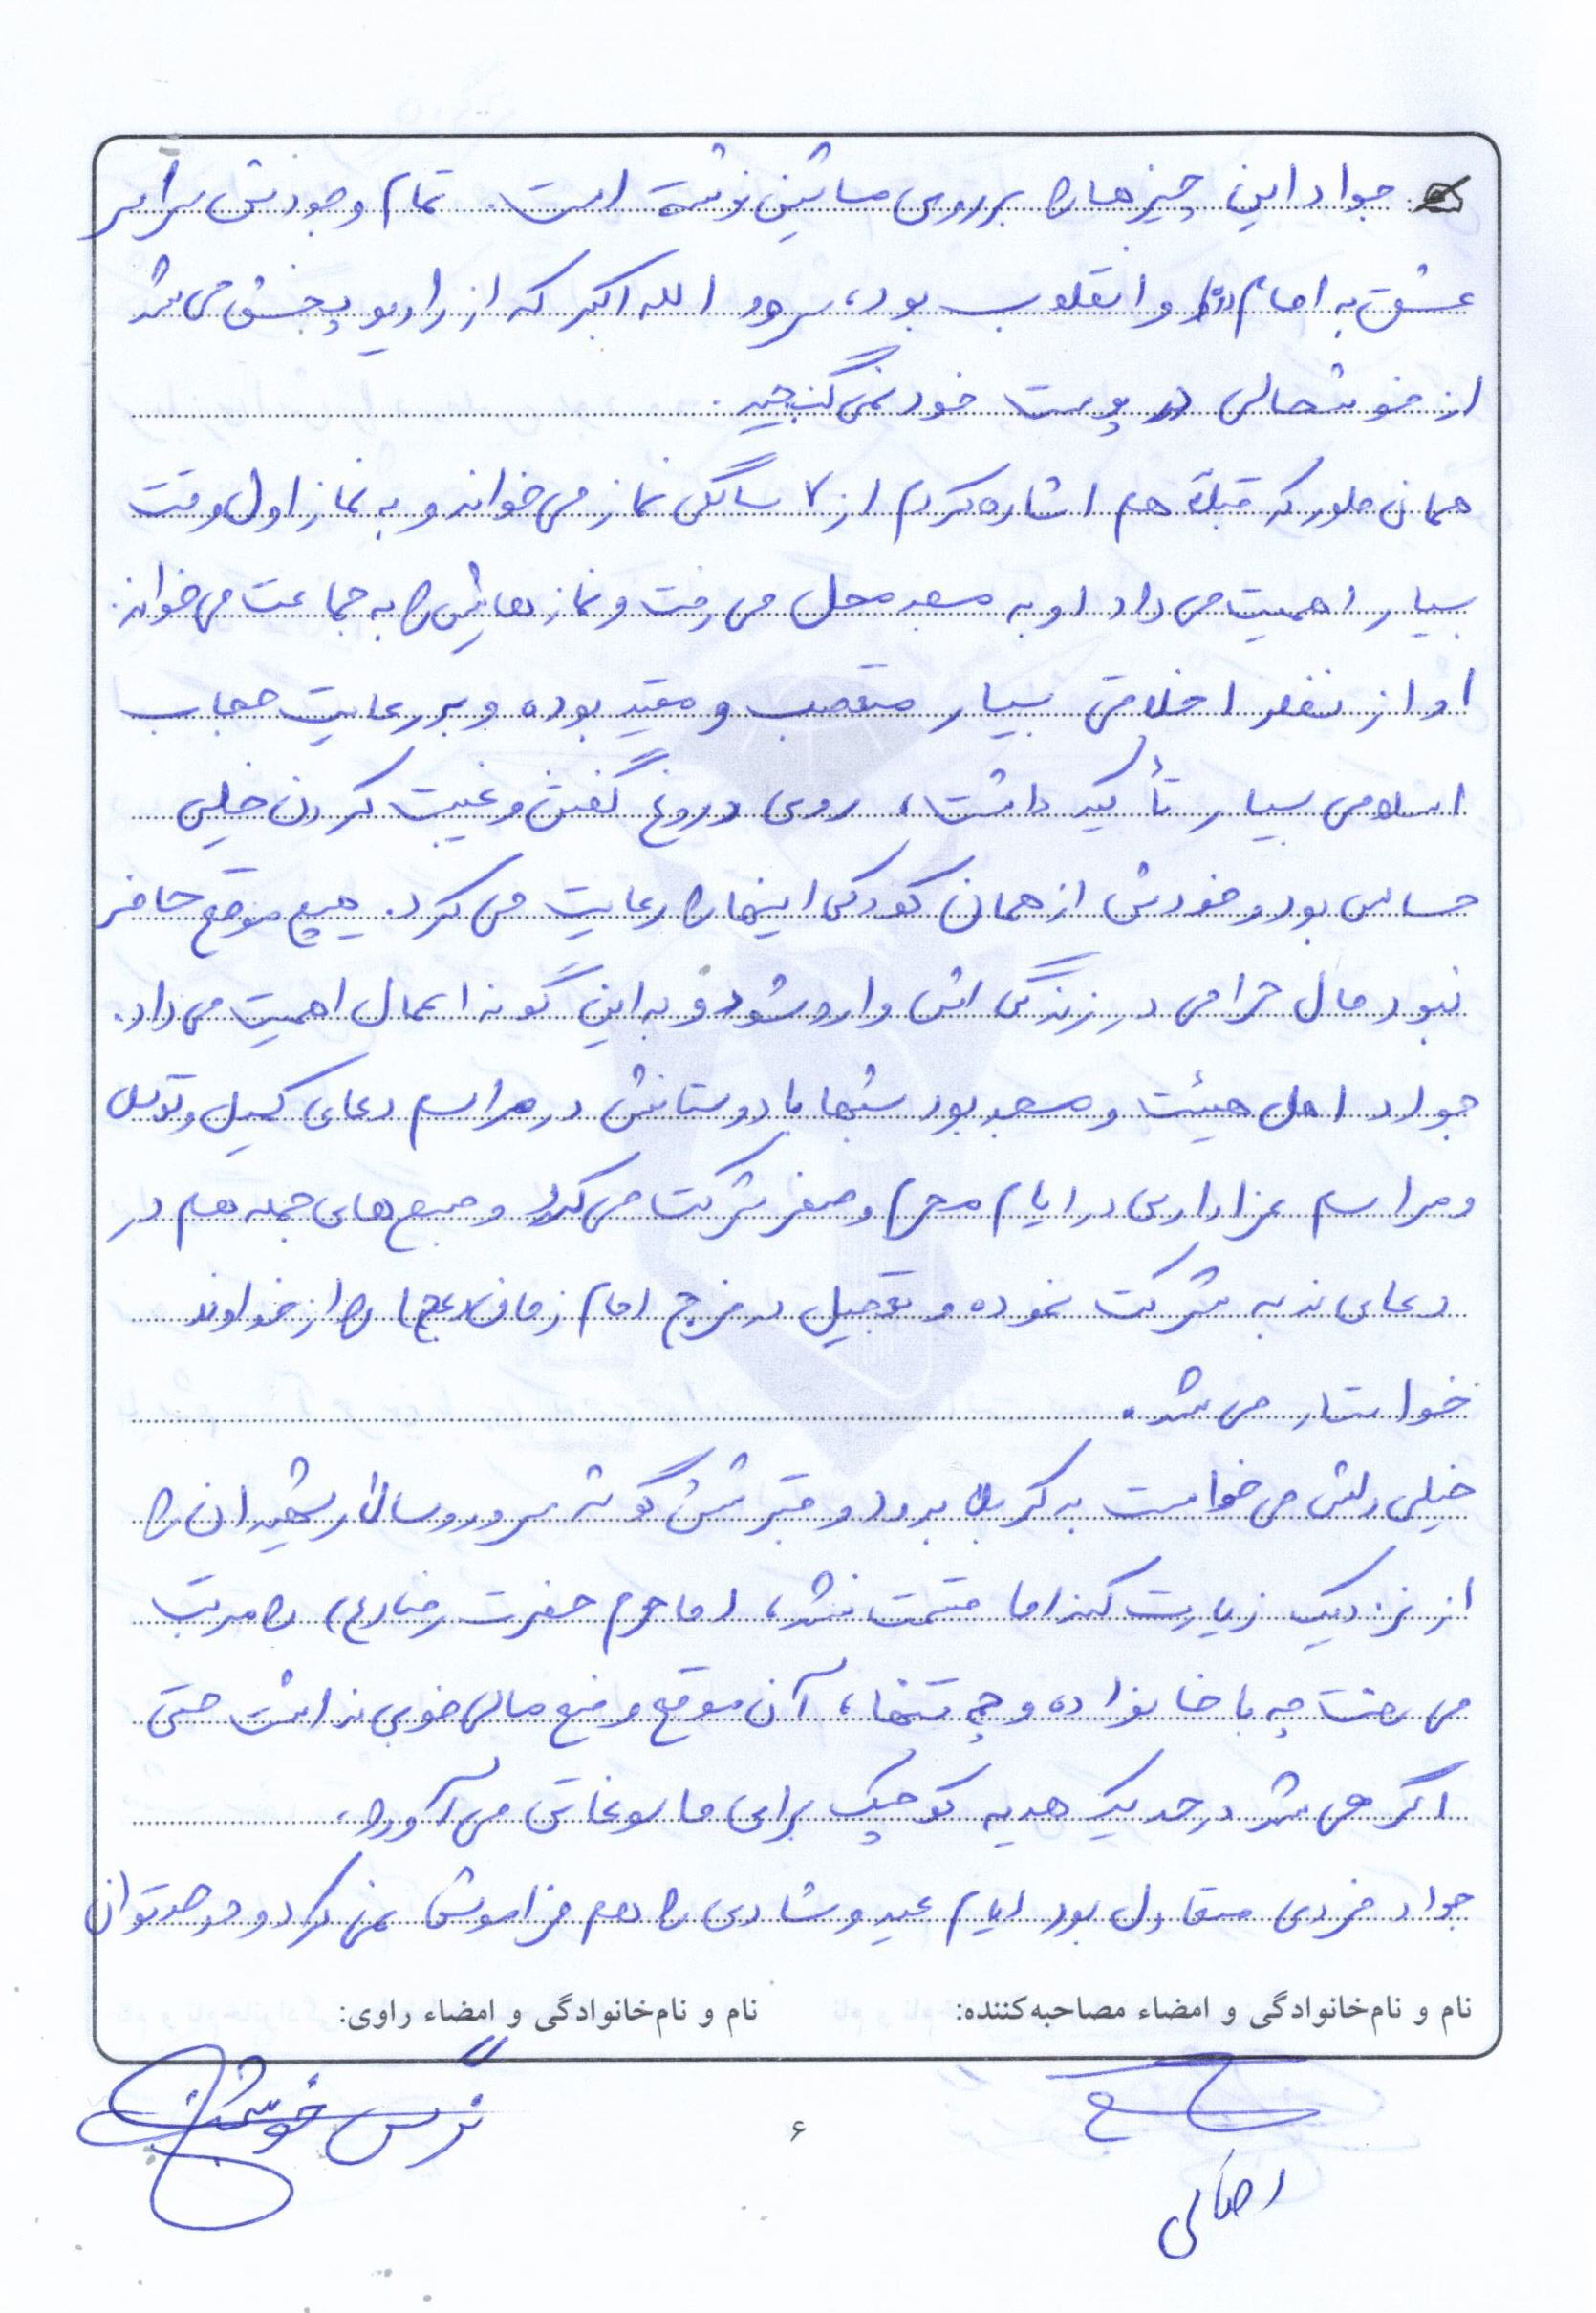 جواد این چیزها را بر روی ماشین نوشته است. تمام وجودش سراسر
عشق به امام (ره) و انقلاب بود، سرود الله اکبر که از رادیو پخش می شد
از خوشحالی در پوست خود نمی گنجید.
همان طور که قبلاً هم اشاره کردم از ۷ سالگی نماز می خواند و به نماز اول وقت
بسیار اهمیت می داد او به مسجد محل می رفت و نمازهایش را به جماعت می خواند.
او از نظر اخلاقی بسیار متعصب و مقید بوده و بر رعایت حجاب
اسلامی بسیار تأکید داشت، روی دروغ گفتن و غیبت کردن خیلی
حساس بود و خودش از همان کودکی اینها را رعایت می کرد. هیچ موقع حاضر
نبود مال حرامی در زندگی اش وارد شود و به این گونه اعمال اهمیت می داد.
جواد اهل هیئت و مسجد بود شبها با دوستانش در مراسم دعای کمیل و توسل
و مراسم عزاداری در ایام محرم و صفر شرکت می کرد و صبح های جمعه هم در
دعای ندبه شرکت نموده و تعجیل در فرج امام زمان (عج) را از خداوند
خواستار می شد.
خیلی دلش می خواست به کربلا برود و قبر شش گوشه سرور و سالار شهیدان را
از نزدیک زیارت کند اما قسمت نشد، اما حرم حضرت رضا (ع) را مرتب
می رفت چه با خانواده و چه تنها، آن موقع وضع مالی خوبی نداشت حتی
اگر می شد در حد یک هدیه کوچک برای ما سوغاتی می آورد.
جواد فردی متعادل بود ایام عید و شادی را هم فراموش نمی کرد و در حد توان
نام و نام‌خانوادگی و امضاء مصاحبه‌کننده: نام و نام‌خانوادگی و امضاء راوی:
نرگس
۶